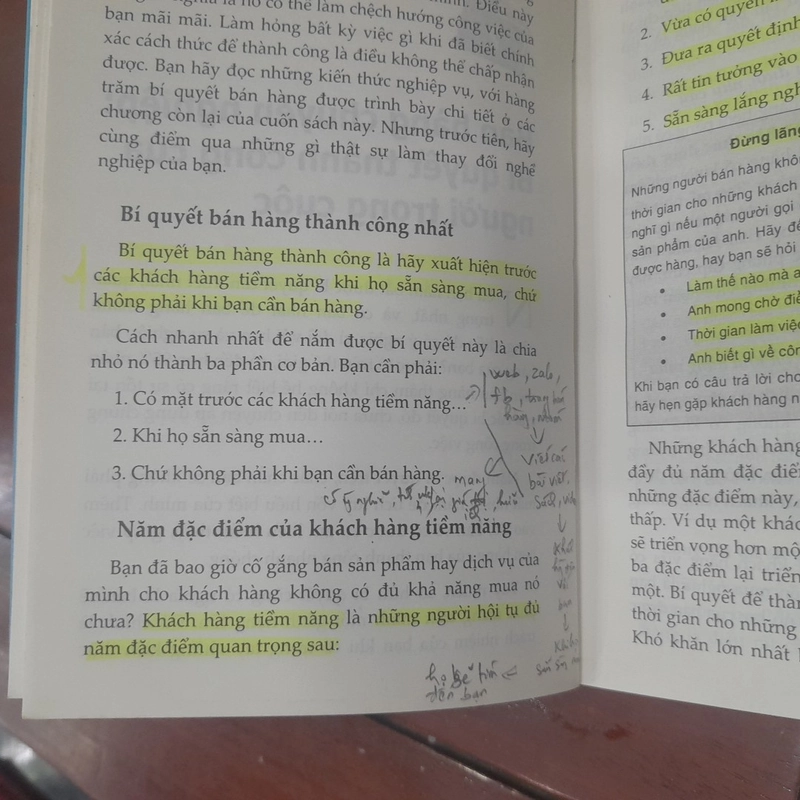 nghĩa là nó có thể làm chệch hướng công việc của
bạn mãi mãi. Làm hỏng bất kỳ việc gì khi đã biết chính
xác cách thức để thành công là điều không thể chấp nhận
được. Bạn hãy đọc những kiến thức nghiệp vụ, với hàng
trăm bí quyết bán hàng được trình bày chi tiết ở các
chương còn lại của cuốn sách này. Nhưng trước tiên, hãy
cùng điểm qua những gì thật sự làm thay đổi nghề
nghiệp của bạn.
Bí quyết bán hàng thành công nhất
Bí quyết bán hàng thành công là hãy xuất hiện trước
các khách hàng tiềm năng khi họ sẵn sàng mua, chứ
không phải khi bạn cần bán hàng.
Cách nhanh nhất để nắm được bí quyết này là chia
nhỏ nó thành ba phần cơ bản. Bạn cần phải:
1. Có mặt trước các khách hàng tiềm năng...
2. Khi họ sẵn sàng mua...
3. Chứ không phải khi bạn cần bán hàng.
web, zalo,
fb,
viết các
bài viết,
Năm đặc điểm của khách hàng tiềm năng
Bạn đã bao giờ cố gắng bán sản phẩm hay dịch vụ của
mình cho khách hàng không có đủ khả năng mua nó
chưa? Khách hàng tiềm năng là những người hội tụ đủ
năm đặc điểm quan trọng sau:
họ sẽ tìm
đến bạn
2. Vừa có quyền
3. Đưa ra quyết định
4. Rất tin tưởng vào
5. Sẵn sàng lắng
Đừng lãng
Những người bán hàng
thời gian cho những khách
nghĩ gì nếu một người gọi
sản phẩm của anh. Hãy
được hàng, hay bạn sẽ hỏi
• Làm thế nào mà
• Anh mong chờ
• Thời gian làm việc
• Anh biết gì về
Khi bạn có câu trả lời
hãy hẹn gặp khách hàng
Những khách hàng
đầy đủ năm đặc điểm
những đặc điểm này,
thấp. Ví dụ một
sẽ triển vọng hơn
ba đặc điểm lại triển
một. Bí quyết để
thời gian cho những
Khó khăn lớn nhất